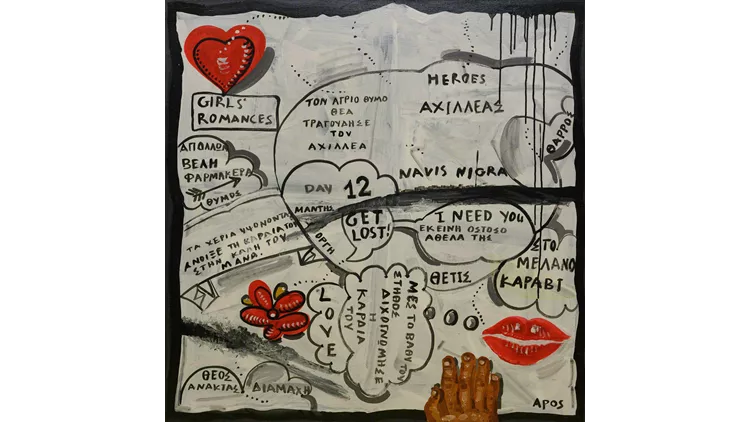 GIRLS'
ROMANCES
ΤΟΝ ΑΓΡΙΟ ΘΥΜΟ
ΘΕΑ
ΤΡΑΓΟΥΔΗΣΕ
ΤΟΥ
ΑΧΙΛΛΕΑ
HEROES
ΑΧΙΛΛΕΑΣ
ΘΑΡΡΟΣ
NAVIS NIGRA
ΑΠΟΛΛΩΝ
ΒΕΛΗ
ΦΑΡΜΑΚΕΡΑ
ΘΥΜΟΣ
DAY 12
ΜΑΝΤΗΣ
ΟΡΓΗ
GET
LOST!
I NEED YOU
ΕΚΕΙΝΗ ΩΣΤΟΣΟ
ΑΘΕΛΑ ΤΗΣ
ΣΤΟ
ΜΕΛΑΝΟ
ΚΑΡΑΒΙ
ΤΑ ΧΕΡΙΑ ΥΨΩΝΟΝΤΑΣ
ΑΝΟΙΞΕ ΤΗ ΚΑΡΔΙΑ ΤΟΥ
ΣΤΗΝ ΚΑΛΗ ΤΟΥ
ΜΑΝΑ.
ΘΕΤΙΣ
LOVE
ΜΕΣ ΤΟ ΒΑΘΥ ΤΟΥ
ΣΤΗΘΟΣ
ΔΙΧΟΓΝΩΜΗΣΕ
Η
ΚΑΡΔΙΑ
ΤΟΥ
ΘΕΟΣ
ΑΝΑΚΤΑΣ
ΔΙΑΜΑΧΗ
APOS